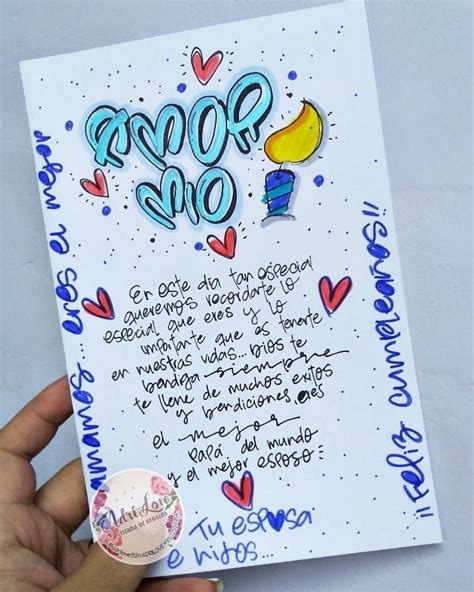 AMOR
MIO
En este día tan especial
queremos recordarte lo
especial que eres y lo
importante que es tenerte
en nuestras vidas... Dios te
bendiga siempre
te llene de muchos exitos
y bendiciones eres
el mejor
Papá del mundo
y el mejor esposo
Tu esposa
e hijos...
amamos... eres el mejor
¡¡Feliz cumpleaños!!
Adri Love
TIENDA DE REGALOS